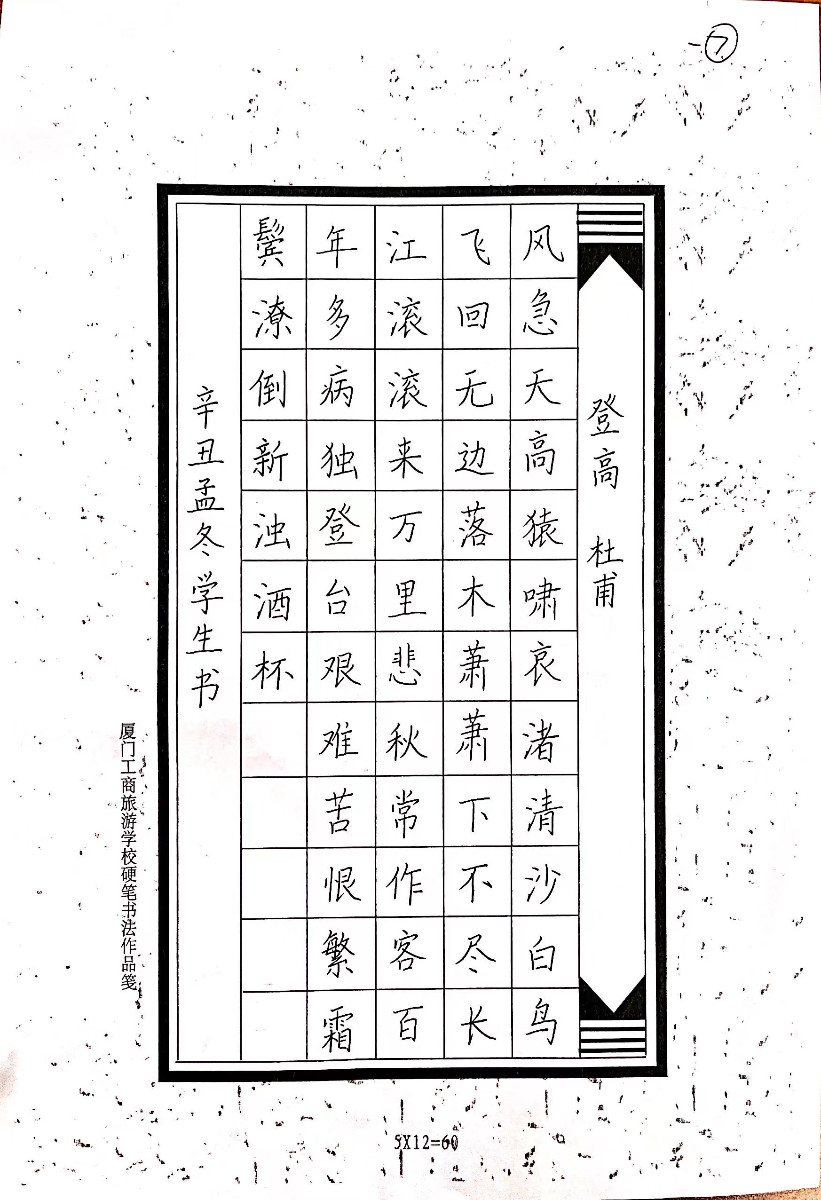 ⑦
登高 杜甫
风急天高猿啸哀渚清沙白鸟
飞回无边落木萧萧下不尽长
江滚滚来万里悲秋常作客百
年多病独登台艰难苦恨繁霜
鬓潦倒新浊酒杯
辛丑孟冬学生书
厦门工商旅游学校硬笔书法作品笺
5X12=60